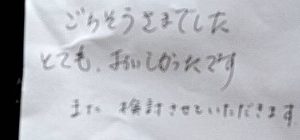 ごちそうさまでした
とても、おいしかったです
また 検討させていただきます